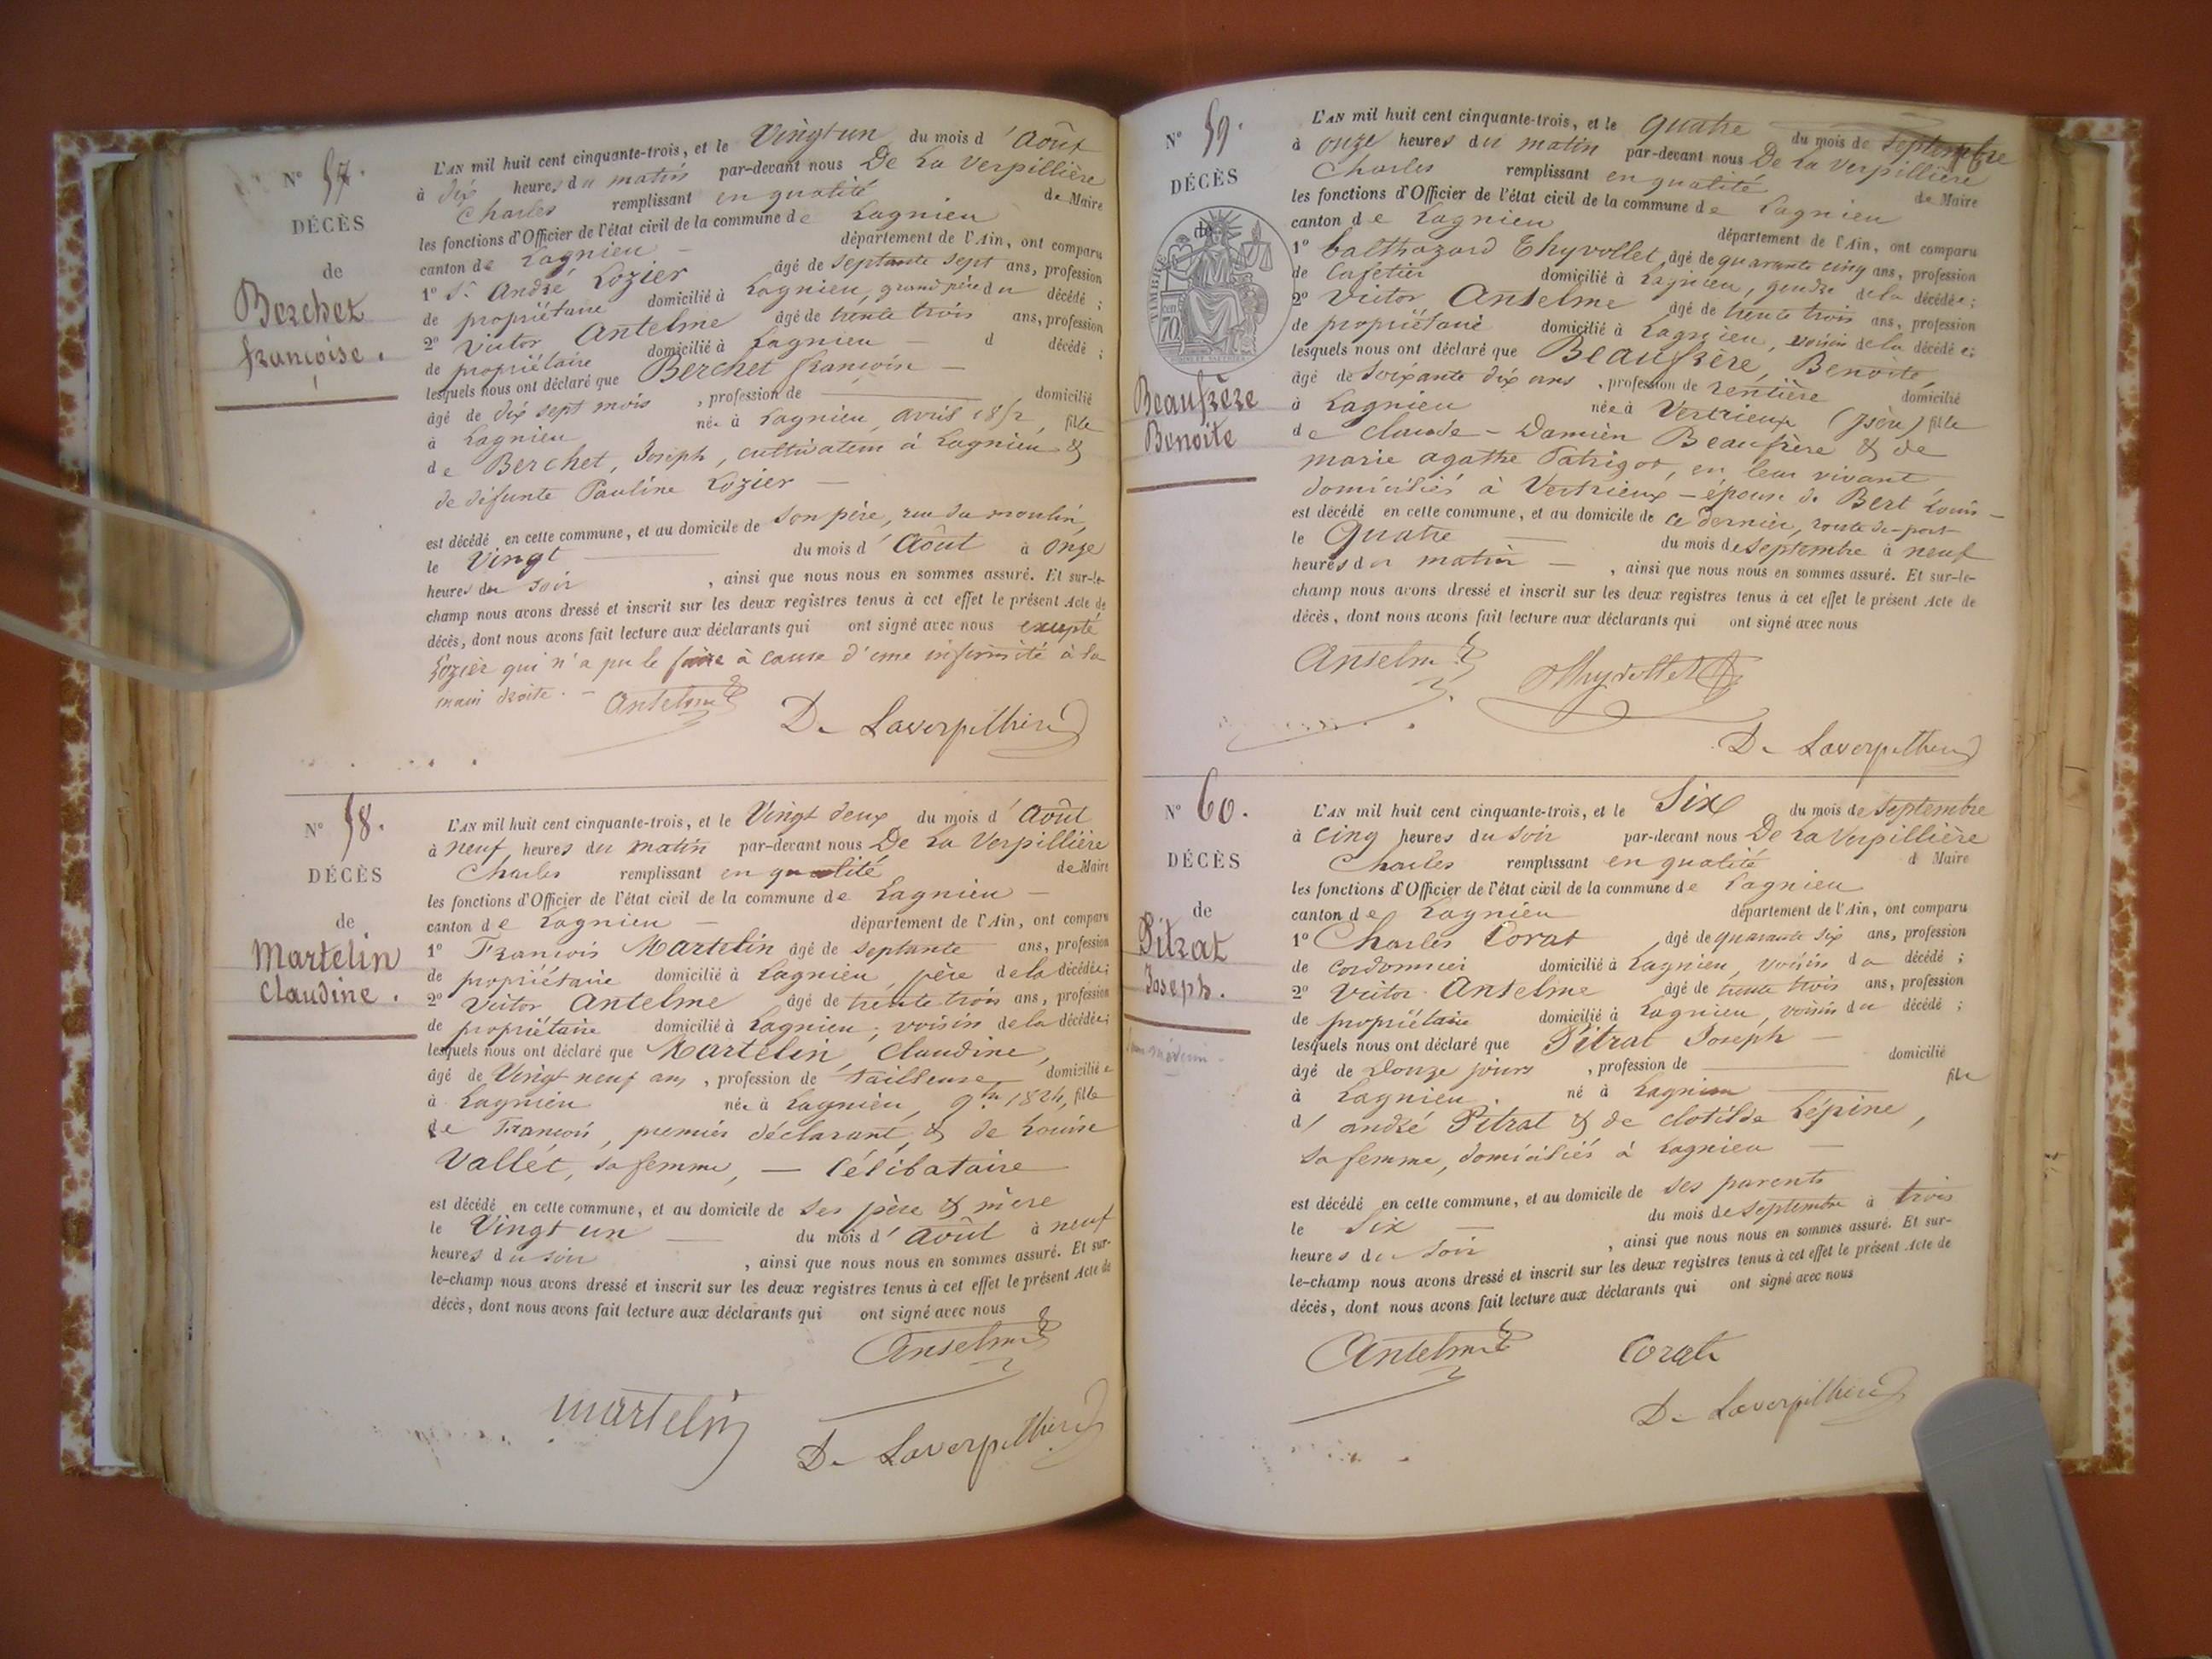 N° 57.
DÉCÈS
de
Berchet
françoise.
L'AN mil huit cent cinquante-trois, et le Vingt un du mois d'Août
à dix heures du matin par-devant nous De La Verpillière
Charles remplissant en qualité de Maire
les fonctions d'Officier de l'état civil de la commune de Lagnieu
canton de Lagnieu — département de l'Ain, ont comparu
1° St André Lozier âgé de septante sept ans, profession
de propriétaire domicilié à Lagnieu, grand père du décédé ;
2° Victor Antelme âgé de trente trois ans, profession
de propriétaire domicilié à Lagnieu — d décédé ;
lesquels nous ont déclaré que Berchet françoise —
âgé de dix sept mois , profession de — domicilié
à Lagnieu née à Lagnieu, avril 1852, fille
de Berchet, Joseph, cultivateur à Lagnieu &
de défunte Pauline Lozier —
est décédé en cette commune, et au domicile de son père, rue du moulin,
le Vingt — du mois d'Août à onze
heures du soir , ainsi que nous nous en sommes assuré. Et sur-le-
champ nous avons dressé et inscrit sur les deux registres tenus à cet effet le présent Acte de
décès, dont nous avons fait lecture aux déclarants qui ont signé avec nous excepté
Lozier qui n'a pu le faire à cause d'une infirmité à la
main droite. — Antelme
De Laverpillière
N° 58.
DÉCÈS
de
Martelin
Claudine.
L'AN mil huit cent cinquante-trois, et le Vingt deux du mois d'Août
à neuf heures du matin par-devant nous De La Verpillière
Charles remplissant en qualité de Maire
les fonctions d'Officier de l'état civil de la commune de Lagnieu —
canton de Lagnieu — département de l'Ain, ont comparu
1° François Martelin âgé de septante ans, profession
de propriétaire domicilié à Lagnieu père de la décédée ;
2° Victor Antelme âgé de trente trois ans, profession
de propriétaire domicilié à Lagnieu, voisin de la décédée ;
lesquels nous ont déclaré que Martelin Claudine,
âgé de Vingt neuf ans, profession de tailleuse domiciliée
à Lagnieu née à Lagnieu, 9bre 1824, fille
de François, premier déclarant, & de Louise
Vallet, sa femme, — Célibataire
est décédé en cette commune, et au domicile de ses père & mère
le Vingt un — du mois d'Août à neuf
heures du soir , ainsi que nous nous en sommes assuré. Et sur-
le-champ nous avons dressé et inscrit sur les deux registres tenus à cet effet le présent Acte de
décès, dont nous avons fait lecture aux déclarants qui ont signé avec nous
Antelme
martelin
De Laverpillière
N° 59.
DÉCÈS
de
TIMBRE
70
Beaufrère
Benoite
L'AN mil huit cent cinquante-trois, et le quatre du mois de Septembre
à onze heures du matin par-devant nous De La Verpillière
Charles remplissant en qualité de Maire
les fonctions d'Officier de l'état civil de la commune de Lagnieu
canton de Lagnieu département de l'Ain, ont comparu
1° balthazard Thyvollet, âgé de quarante cinq ans, profession
de Cafétier domicilié à Lagnieu, gendre de la décédée ;
2° Victor Antelme âgé de trente trois ans, profession
de propriétaire domicilié à Lagnieu, voisin de la décédée ;
lesquels nous ont déclaré que Beaufrère, Benoite,
âgé de soixante dix ans , profession de rentière domicilié
à Lagnieu née à Vertrieux (Isère) fille
de claude-Damien Beaufrère & de
marie agathe Patrigot, en leur vivant
domiciliés à Vertrieux — épouse de Bert Louis —
est décédé en cette commune, et au domicile de ce dernier, route de port
le Quatre — du mois de septembre à neuf
heures du matin — , ainsi que nous nous en sommes assuré. Et sur-le-
champ nous avons dressé et inscrit sur les deux registres tenus à cet effet le présent Acte de
décès, dont nous avons fait lecture aux déclarants qui ont signé avec nous
Antelme Thyvollet
De Laverpillière
N° 60.
DÉCÈS
de
Pitrat
Joseph.
L'AN mil huit cent cinquante-trois, et le Six du mois de Septembre
à Cinq heures du soir par-devant nous De La Verpillière
Charles remplissant en qualité d Maire
les fonctions d'Officier de l'état civil de la commune de Lagnieu
canton de Lagnieu département de l'Ain, ont comparu
1° Charles Corat âgé de quarante six ans, profession
de cordonnier domicilié à Lagnieu, voisin du décédé ;
2° Victor Antelme âgé de trente trois ans, profession
de propriétaire domicilié à Lagnieu, voisin du décédé ;
lesquels nous ont déclaré que Pitrat Joseph —
âgé de Douze jours , profession de — domicilié
à Lagnieu. né à Lagnieu — fils
d'andré Pitrat & de clotilde Lépine,
sa femme, domiciliés à Lagnieu —
est décédé en cette commune, et au domicile de ses parents
le Six — du mois de Septembre à trois
heures du soir , ainsi que nous nous en sommes assuré. Et sur-
le-champ nous avons dressé et inscrit sur les deux registres tenus à cet effet le présent Acte de
décès, dont nous avons fait lecture aux déclarants qui ont signé avec nous
Antelme Corat
De Laverpillière